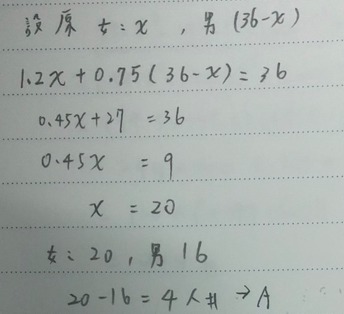 設原 女:x , 男 (36-x)
1.2x + 0.75 (36-x) = 36
0.45x + 27 = 36
0.45x = 9
x = 20
女: 20 , 男 16
20 - 16 = 4 人 # → A